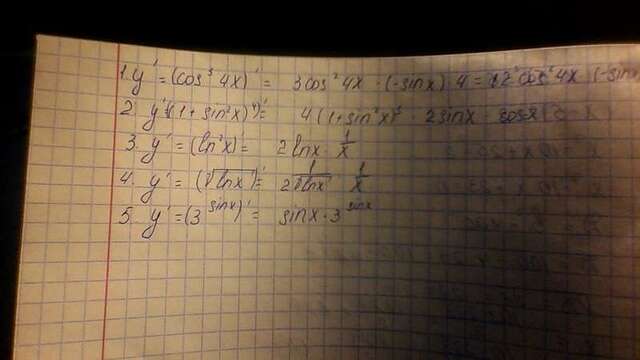 1. y' = (cos³ 4x)' = 3cos² 4x · (-sinx) 4 = 12 cos² 4x (-sin
2. y' = (1 + sin²x)⁴)' = 4(1+sin²x)³ · 2sinx · cosx
3. y' = (ln²x)' = 2lnx · 1/x
4. y' = (√lnx)' = 1/2√lnx · 1/x
5. y' = (3^sinx)' = sinx · 3^sinx